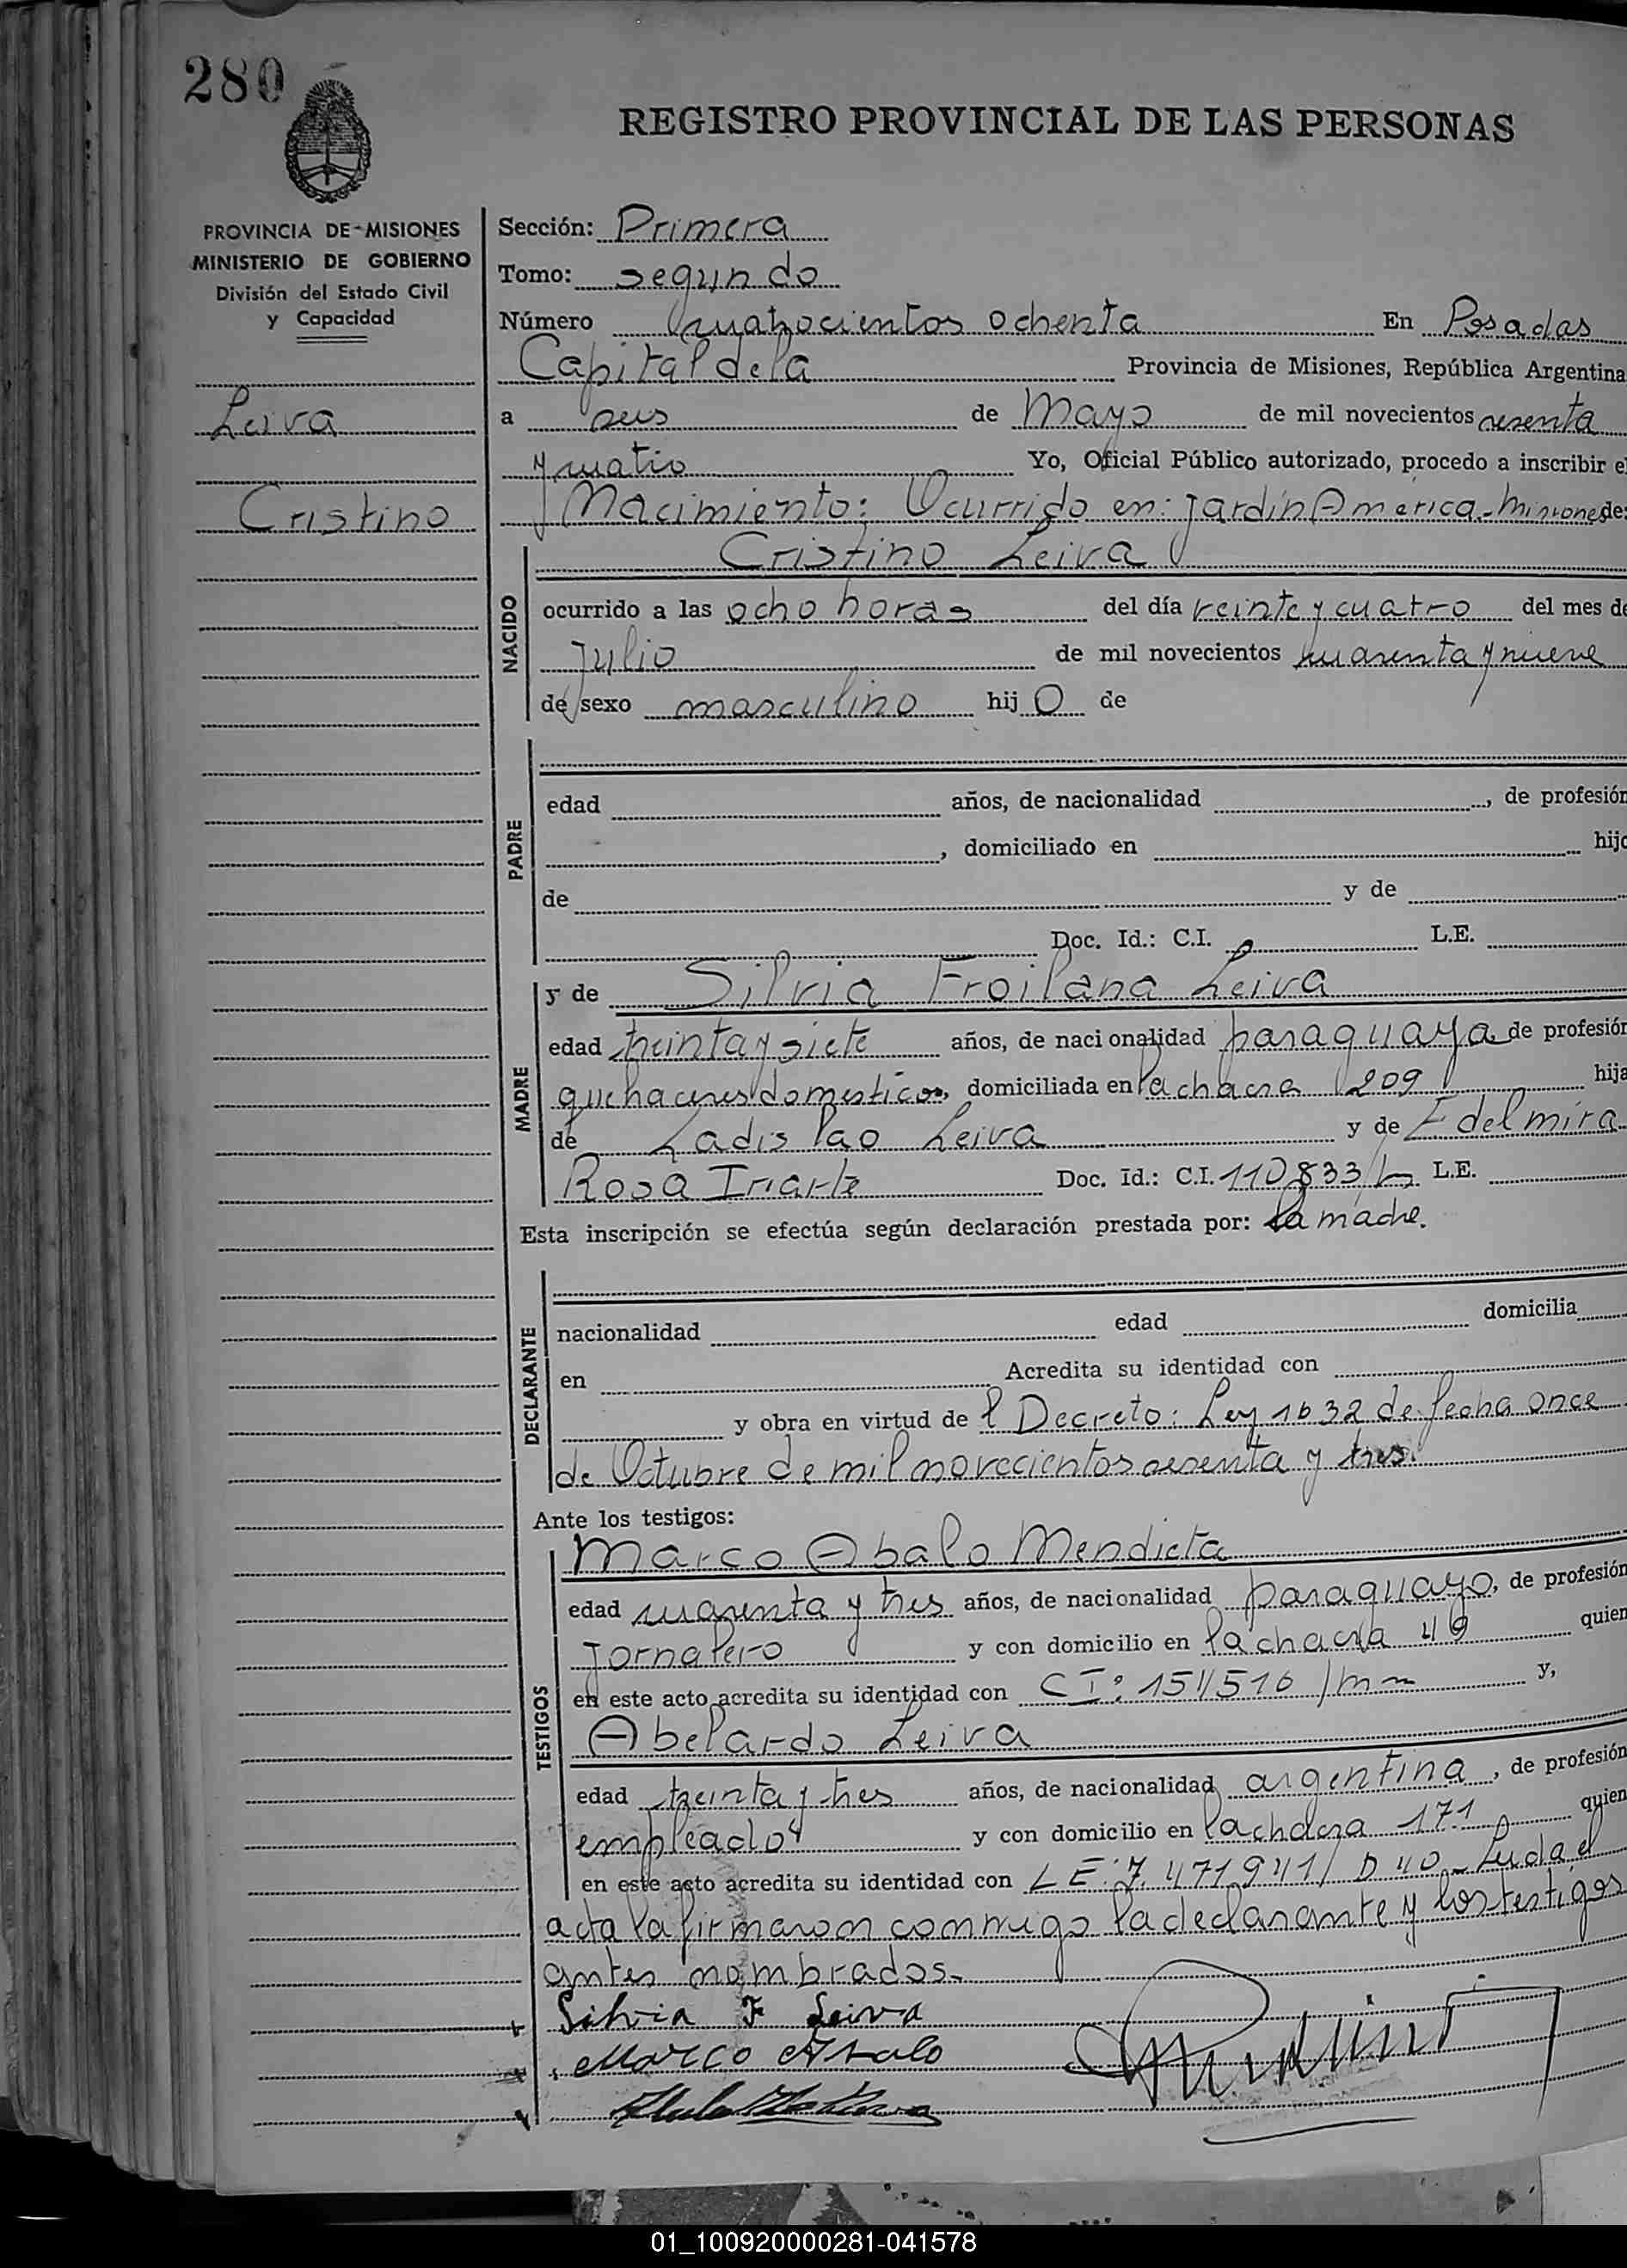 280
REGISTRO PROVINCIAL DE LAS PERSONAS
PROVINCIA DE MISIONES
MINISTERIO DE GOBIERNO
División del Estado Civil
y Capacidad
Leiva
Cristino
Sección: Primera
Tomo: segundo
Número Cuatrocientos ochenta En Posadas
Capital de la Provincia de Misiones, República Argentina
a seis de Mayo de mil novecientos sesenta
y cuatro Yo, Oficial Público autorizado, procedo a inscribir el
Nacimiento: Ocurrido en: Jardín America.- Misiones de:
NACIDO
Cristino Leiva
ocurrido a las ocho horas del día veinte y cuatro del mes de
Julio de mil novecientos cuarenta y nueve
de sexo masculino hijo de
PADRE
edad años, de nacionalidad , de profesión
, domiciliado en hijo
de y de
Doc. Id.: C.I. L.E.
MADRE
y de Silvia Froilana Leiva
edad treinta y siete años, de nacionalidad paraguaya de profesión
quehaceres domesticos, domiciliada en la chacra 209 hija
de Ladislao Leiva y de Edelmira
Rosa Iriarte Doc. Id.: C.I. 110833/ L.E.
Esta inscripción se efectúa según declaración prestada por: la madre.
DECLARANTE
nacionalidad edad domicilia
en Acredita su identidad con
y obra en virtud de l Decreto: Ley 1632 de fecha once
de Octubre de mil novecientos sesenta y tres.
Ante los testigos:
TESTIGOS
Marco Abalo Mendieta
edad cuarenta y tres años, de nacionalidad paraguayo, de profesión
Jornalero y con domicilio en la chacra 49 quien
en este acto acredita su identidad con CI: 151516 / y,
Abelardo Leiva
edad treinta y tres años, de nacionalidad argentina, de profesión
empleado y con domicilio en la chacra 171 quien
en este acto acredita su identidad con LE: 7.471941/ D 40.- Leida el
acta la firmaron conmigo la declarante y los testigos
antes nombrados.-
Silvia F Leiva
Marco Abalo
01_100920000281-041578